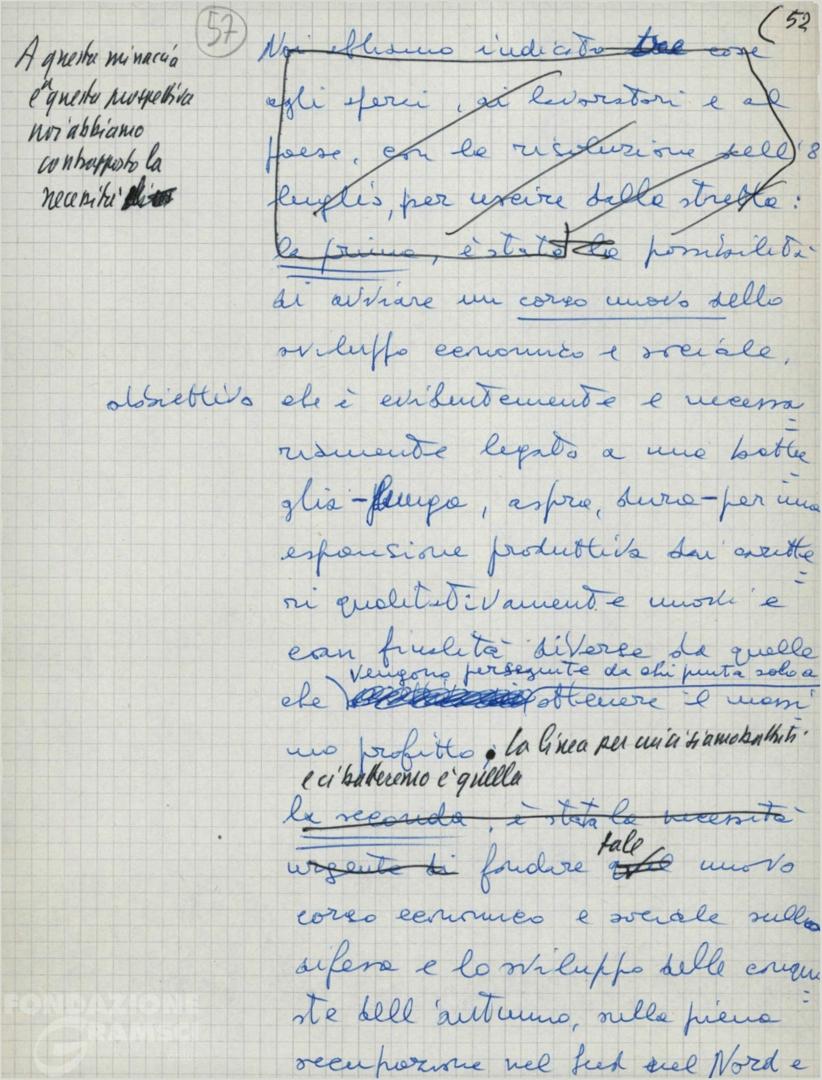 57
(52
A questa minaccia
e a questa prospettiva
noi abbiamo
contrapposto la
necessità di
Noi abbiamo indicato tre cose
agli operai, ai lavoratori e al
paese, con la risoluzione dell'8
luglio, per uscire dalla stretta:
la prima, è stata la possibilità
di avviare un corso nuovo dello
sviluppo economico e sociale,
obbiettivo che è evidentemente e necessa
riamente legato a una batta
glia - lunga, aspra, dura - per una
espansione produttiva dai caratte
ri qualitativamente nuovi e
con finalità diverse da quelle
vengono perseguite da chi punta solo a
che ottenere il massi
mo profitto. La linea per cui ci siamo battuti
e ci batteremo è quella
la seconda, è stata la necessità
tale
urgente di fondare quel nuovo
corso economico e sociale sulla
difesa e lo sviluppo delle conqui
ste dell'autunno, sulla piena
occupazione nel Sud e nel Nord e
FONDAZIONE
GRAMSCI